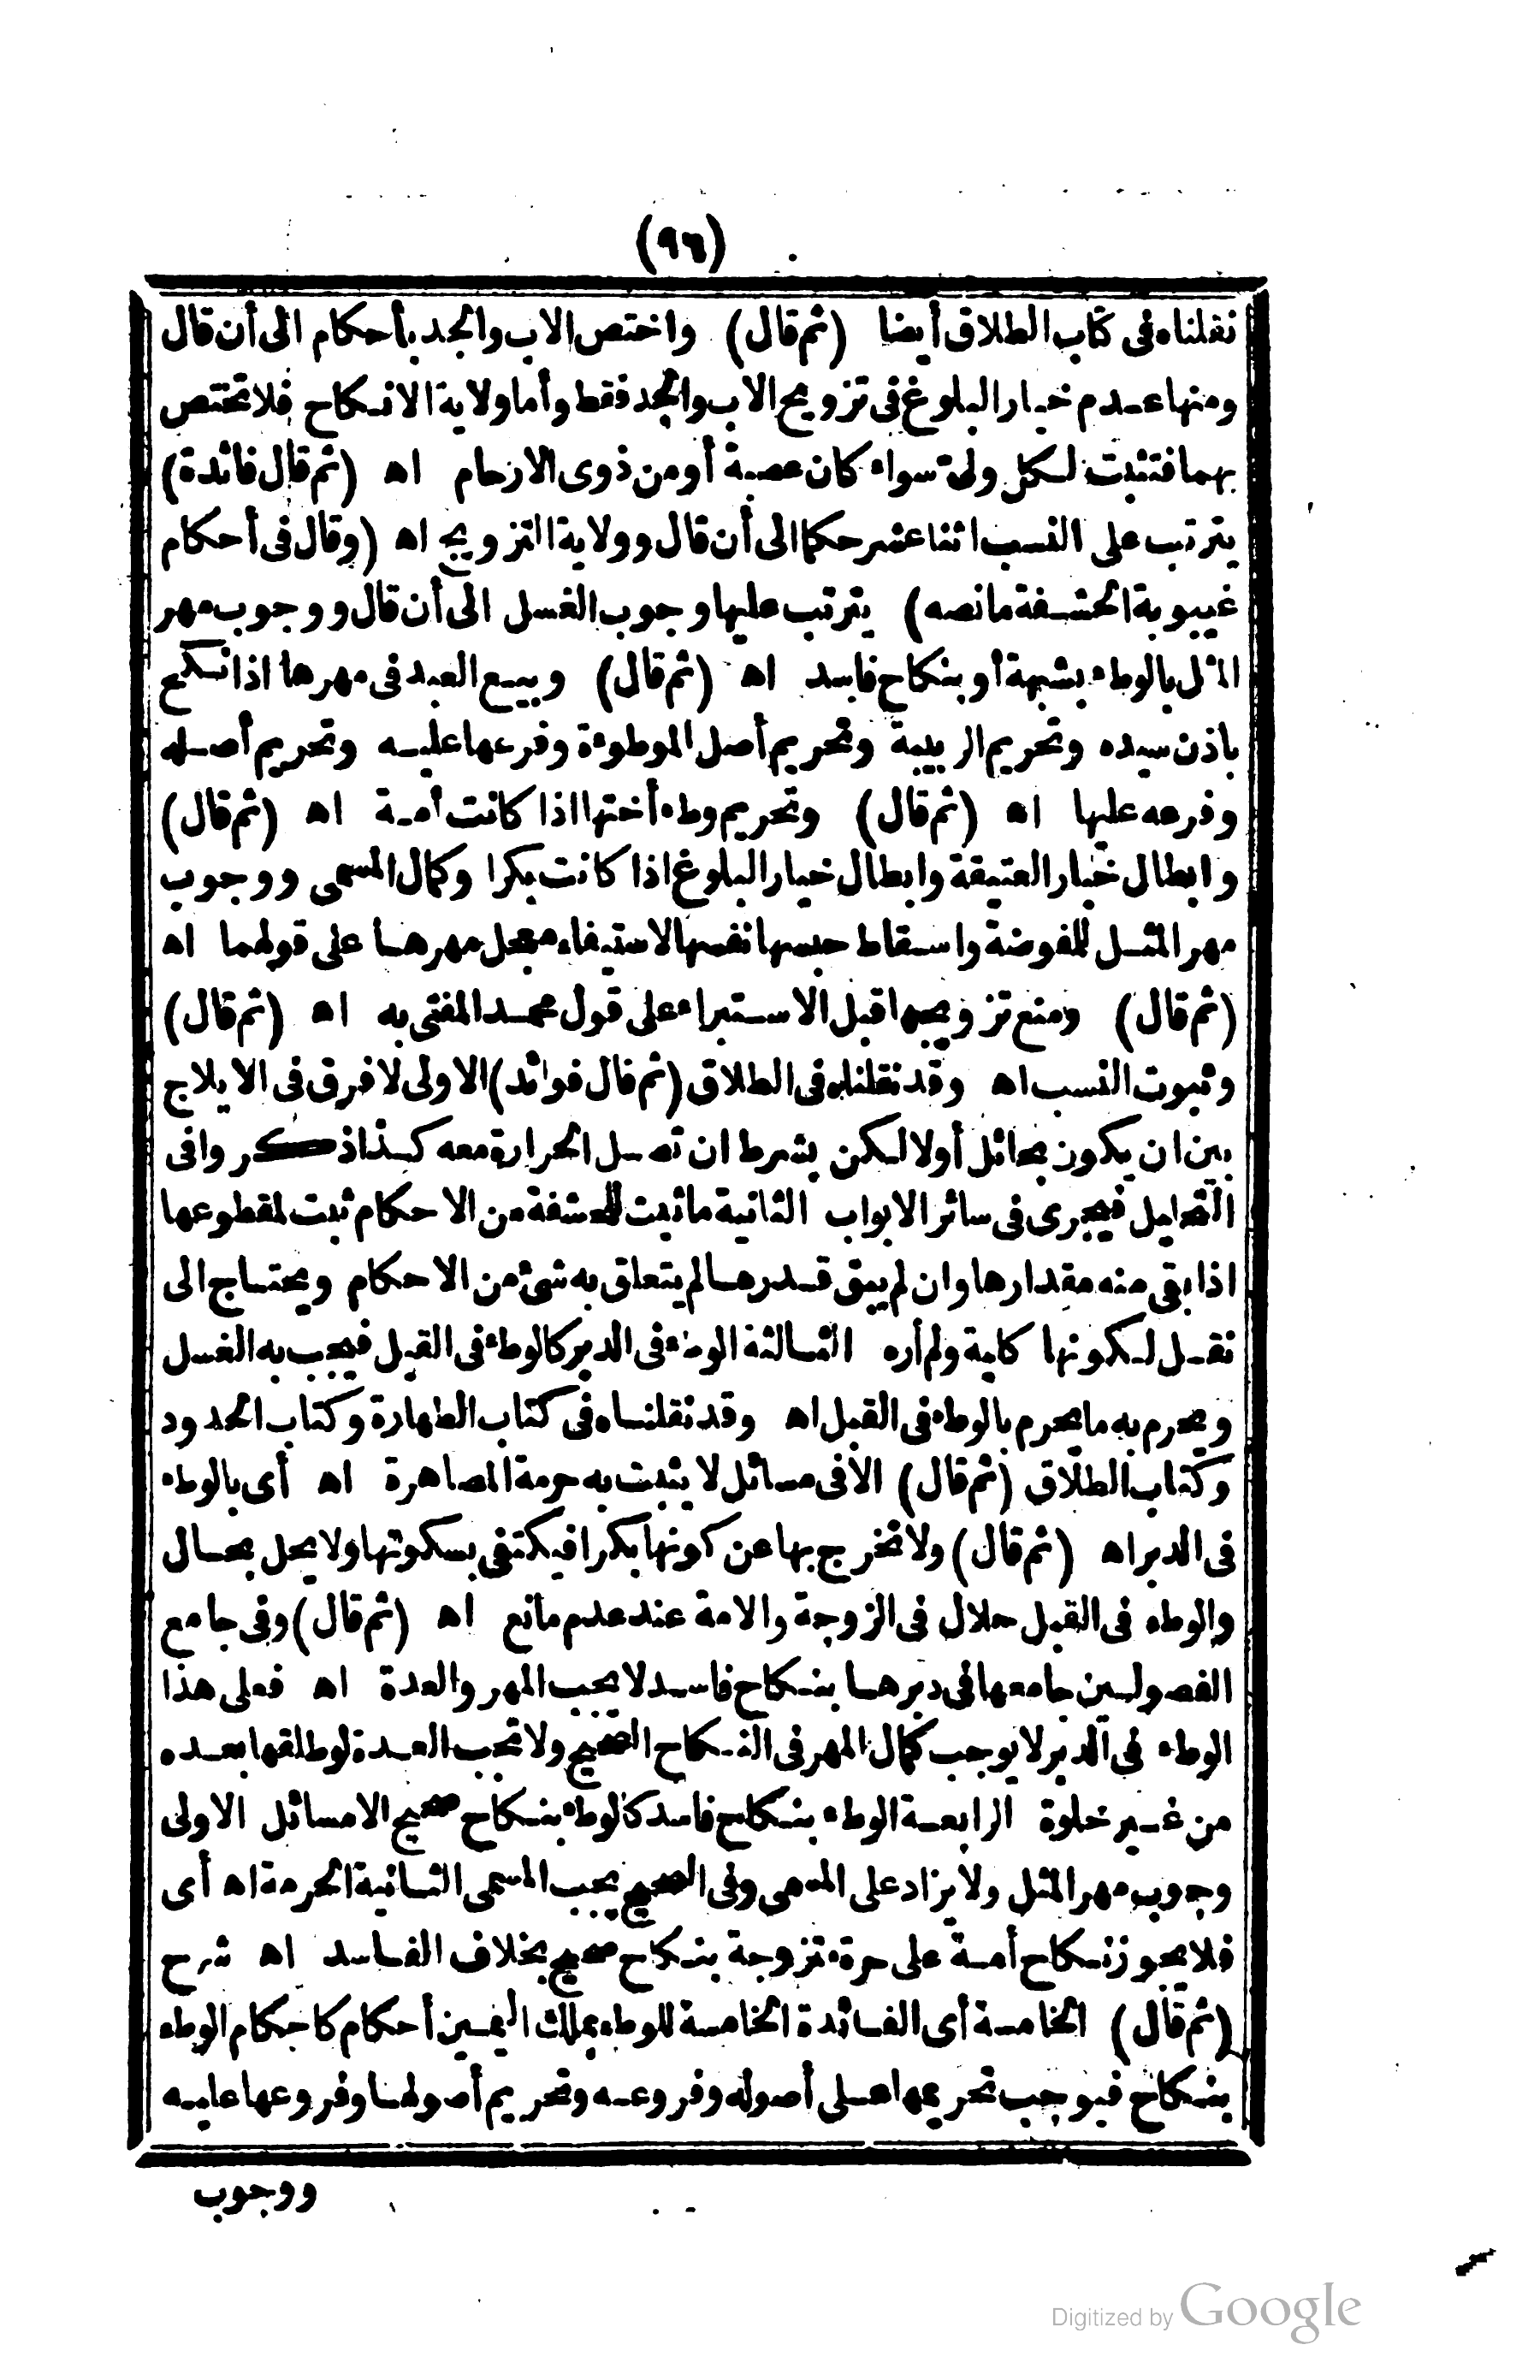 (٩٦)
نقلناه فى كتاب الطلاق أيضا (ثم قال) واختص الاب والجد بأحكام الى أن قال
ومنها عدم خيار البلوغ فى تزويج الاب والجد فقط وأما ولاية الانكاح فلا تختص
بهما فتثبت لكل ولى سواء كان عصبة أو من ذوى الارحام اه (ثم قال فائدة)
يترتب على النسب اثنا عشر حكما الى أن قال وولاية التزويج اه (وقال فى أحكام
غيبوبة الحشفة مانصه) يترتب عليها وجوب الغسل الى أن قال ووجوب مهر
المثل بالوطء بشبهة أو بنكاح فاسد اه (ثم قال) وبيع العبد فى مهرها اذا نكح
باذن سيده وتحريم الربيبة وتحريم أصل الموطوءة وفرعها عليه وتحريم أصله
وفرعه عليها اه (ثم قال) وتحريم وطء أختها اذا كانت أمة اه (ثم قال)
وابطال خيار العتيقة وابطال خيار البلوغ اذا كانت بكرا وكمال المسمى ووجوب
مهر المثل للمفوضة واسقاط حبسها نفسها لاستيفاء معجل مهرها على قولهما اه
(ثم قال) ومنع تزويجها قبل الاستبراء على قول محمد المفتى به اه (ثم قال)
وثبوت النسب اه وقد نقلناه فى الطلاق (ثم قال فوائد) الاولى لا فرق فى الايلاج
بين ان يكون بحائل أولا لكن بشرط ان تصل الحرارة معه كذا ذكروا فى
التحليل فيجرى فى سائر الابواب الثانية ما ثبت للحشفة من الاحكام ثبت لمقطوعها
اذا بقى منه مقدارها وان لم يبق قدرها لم يتعلق به شئ من الاحكام ويحتاج الى
نقل لكونها كلية ولم أره الثالثة الوطء فى الدبر كالوطء فى القبل فيجب به الغسل
ويحرم به ما يحرم بالوطء فى القبل اه وقد نقلناه فى كتاب الطهارة وكتاب الحدود
وكتاب الطلاق (ثم قال) الا فى مسائل لا يثبت به حرمة المصاهرة اه أى بالوطء
فى الدبر اه (ثم قال) ولا تخرج بها عن كونها بكرا فيكتفى بسكوتها ولا يحل بحال
والوطء فى القبل حلال فى الزوجة والامة عند عدم مانع اه (ثم قال) وفى جامع
الفصولين جامعها فى دبرها بنكاح فاسد لا يجب المهر والعدة اه فعلى هذا
الوطء فى الدبر لا يوجب كمال المهر فى النكاح الصحيح ولا تجب العدة لو طلقها بعده
من غير خلوة الرابعة الوطء بنكاح فاسد كالوطء بنكاح صحيح الا مسائل الاولى
وجوب مهر المثل ولا يزاد على المسمى وفى الصحيح يجب المسمى الثانية الحرمة اه أى
فلا يجوز نكاح أمة على حرة متزوجة بنكاح صحيح بخلاف الفاسد اه شرح
(ثم قال) الخامسة أى الفائدة الخامسة للوطء بملك اليمين أحكام كاحكام الوطء
بنكاح فيوجب تحريمها على أصوله وفروعه وتحريم أصولها وفروعها عليه
ووجوب
Digitized by Google